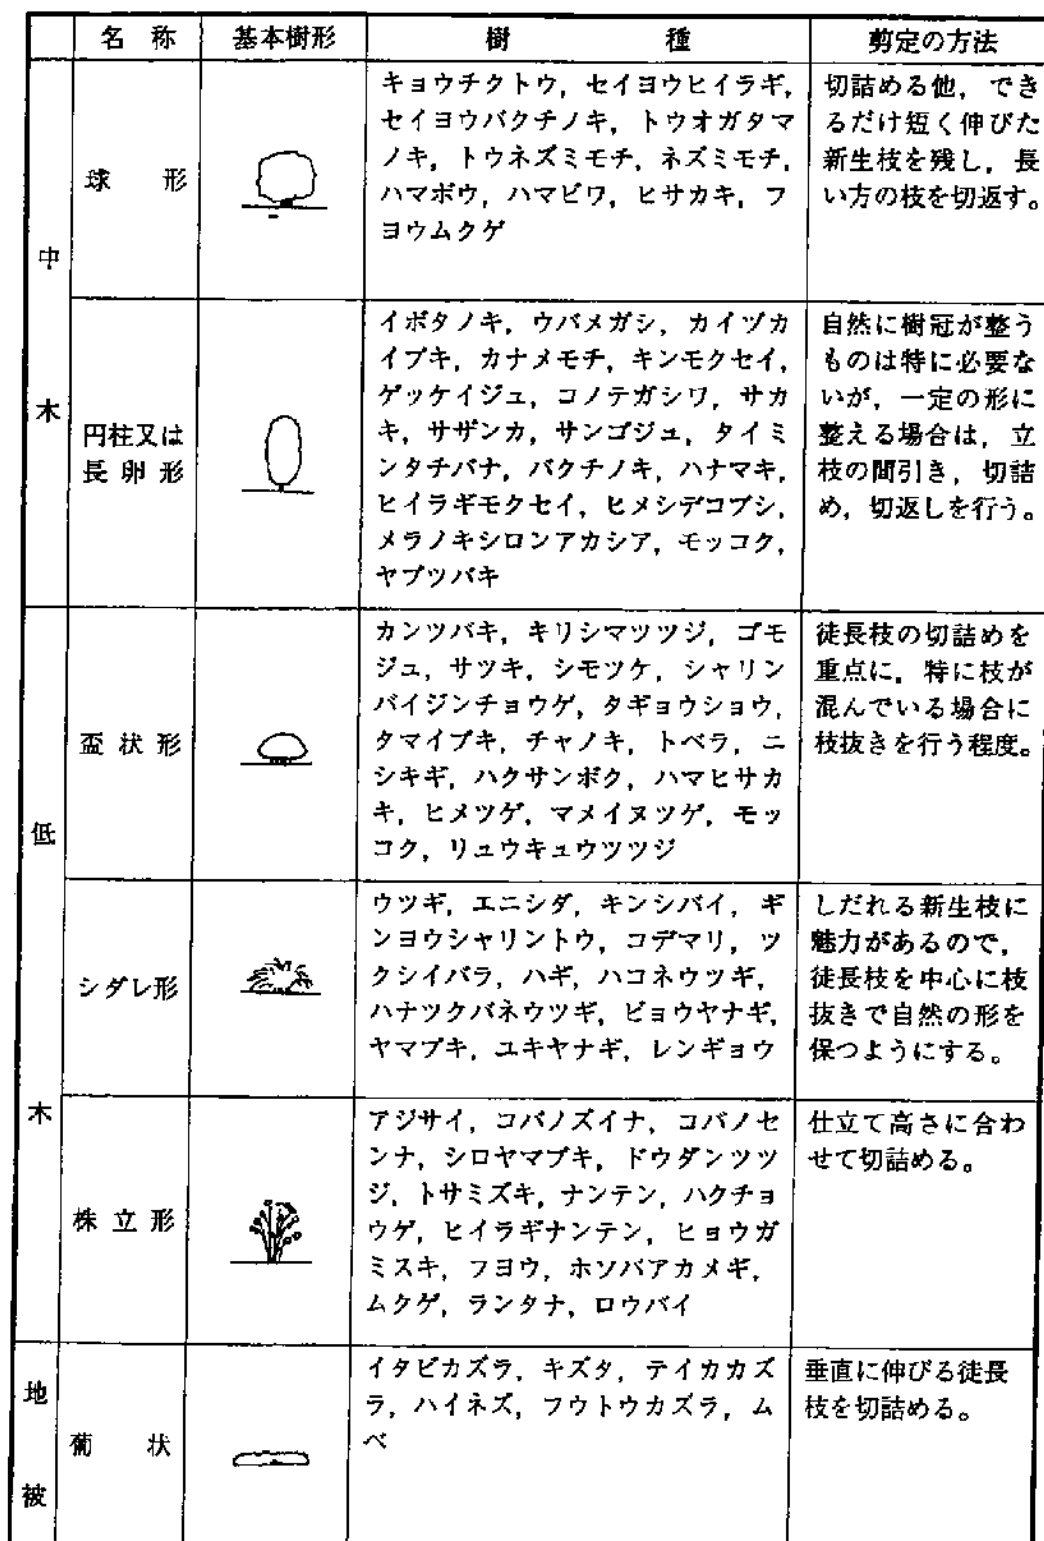 名称 基本樹形 樹種 剪定の方法
中木
球形
キョウチクトウ，セイヨウヒイラギ，
セイヨウバクチノキ，トウオガタマ
ノキ，トウネズミモチ，ネズミモチ，
ハマボウ，ハマビワ，ヒサカキ，フ
ヨウムクゲ
切詰める他，でき
るだけ短く伸びた
新生枝を残し，長
い方の枝を切返す。
円柱又は
長卵形
イボタノキ，ウバメガシ，カイヅカ
イブキ，カナメモチ，キンモクセイ，
ゲッケイジュ，コノテガシワ，サカ
キ，サザンカ，サンゴジュ，タイミ
ンタチバナ，バクチノキ，ハナマキ，
ヒイラギモクセイ，ヒメシデコブシ，
メラノキシロンアカシア，モッコク，
ヤブツバキ
自然に樹冠が整う
ものは特に必要な
いが，一定の形に
整える場合は，立
枝の間引き，切詰
め，切返しを行う。
低木
盃状形
カンツバキ，キリシマツツジ，ゴモ
ジュ，サツキ，シモツケ，シャリン
バイジンチョウゲ，タギョウショウ，
タマイブキ，チャノキ，トベラ，ニ
シキギ，ハクサンボク，ハマヒサカ
キ，ヒメツゲ，マメイヌツゲ，モッ
コク，リュウキュウツツジ
徒長枝の切詰めを
重点に，特に枝が
混んでいる場合に
枝抜きを行う程度。
シダレ形
ウツギ，エニシダ，キンシバイ，ギ
ンヨウシャリントウ，コデマリ，ツ
クシイバラ，ハギ，ハコネウツギ，
ハナツクバネウツギ，ビョウヤナギ，
ヤマブキ，ユキヤナギ，レンギョウ
しだれる新生枝に
魅力があるので，
徒長枝を中心に枝
抜きで自然の形を
保つようにする。
株立形
アジサイ，コバノズイナ，コバノセ
ンナ，シロヤマブキ，ドウダンツツ
ジ，トサミズキ，ナンテン，ハクチョ
ウゲ，ヒイラギナンテン，ヒョウガ
ミスキ，フヨウ，ホソバアカメギ，
ムクゲ，ランタナ，ロウバイ
仕立て高さに合わ
せて切詰める。
地被
葡状
イタビカズラ，キズタ，テイカカズ
ラ，ハイネズ，フウトウカズラ，ム
ベ
垂直に伸びる徒長
枝を切詰める。